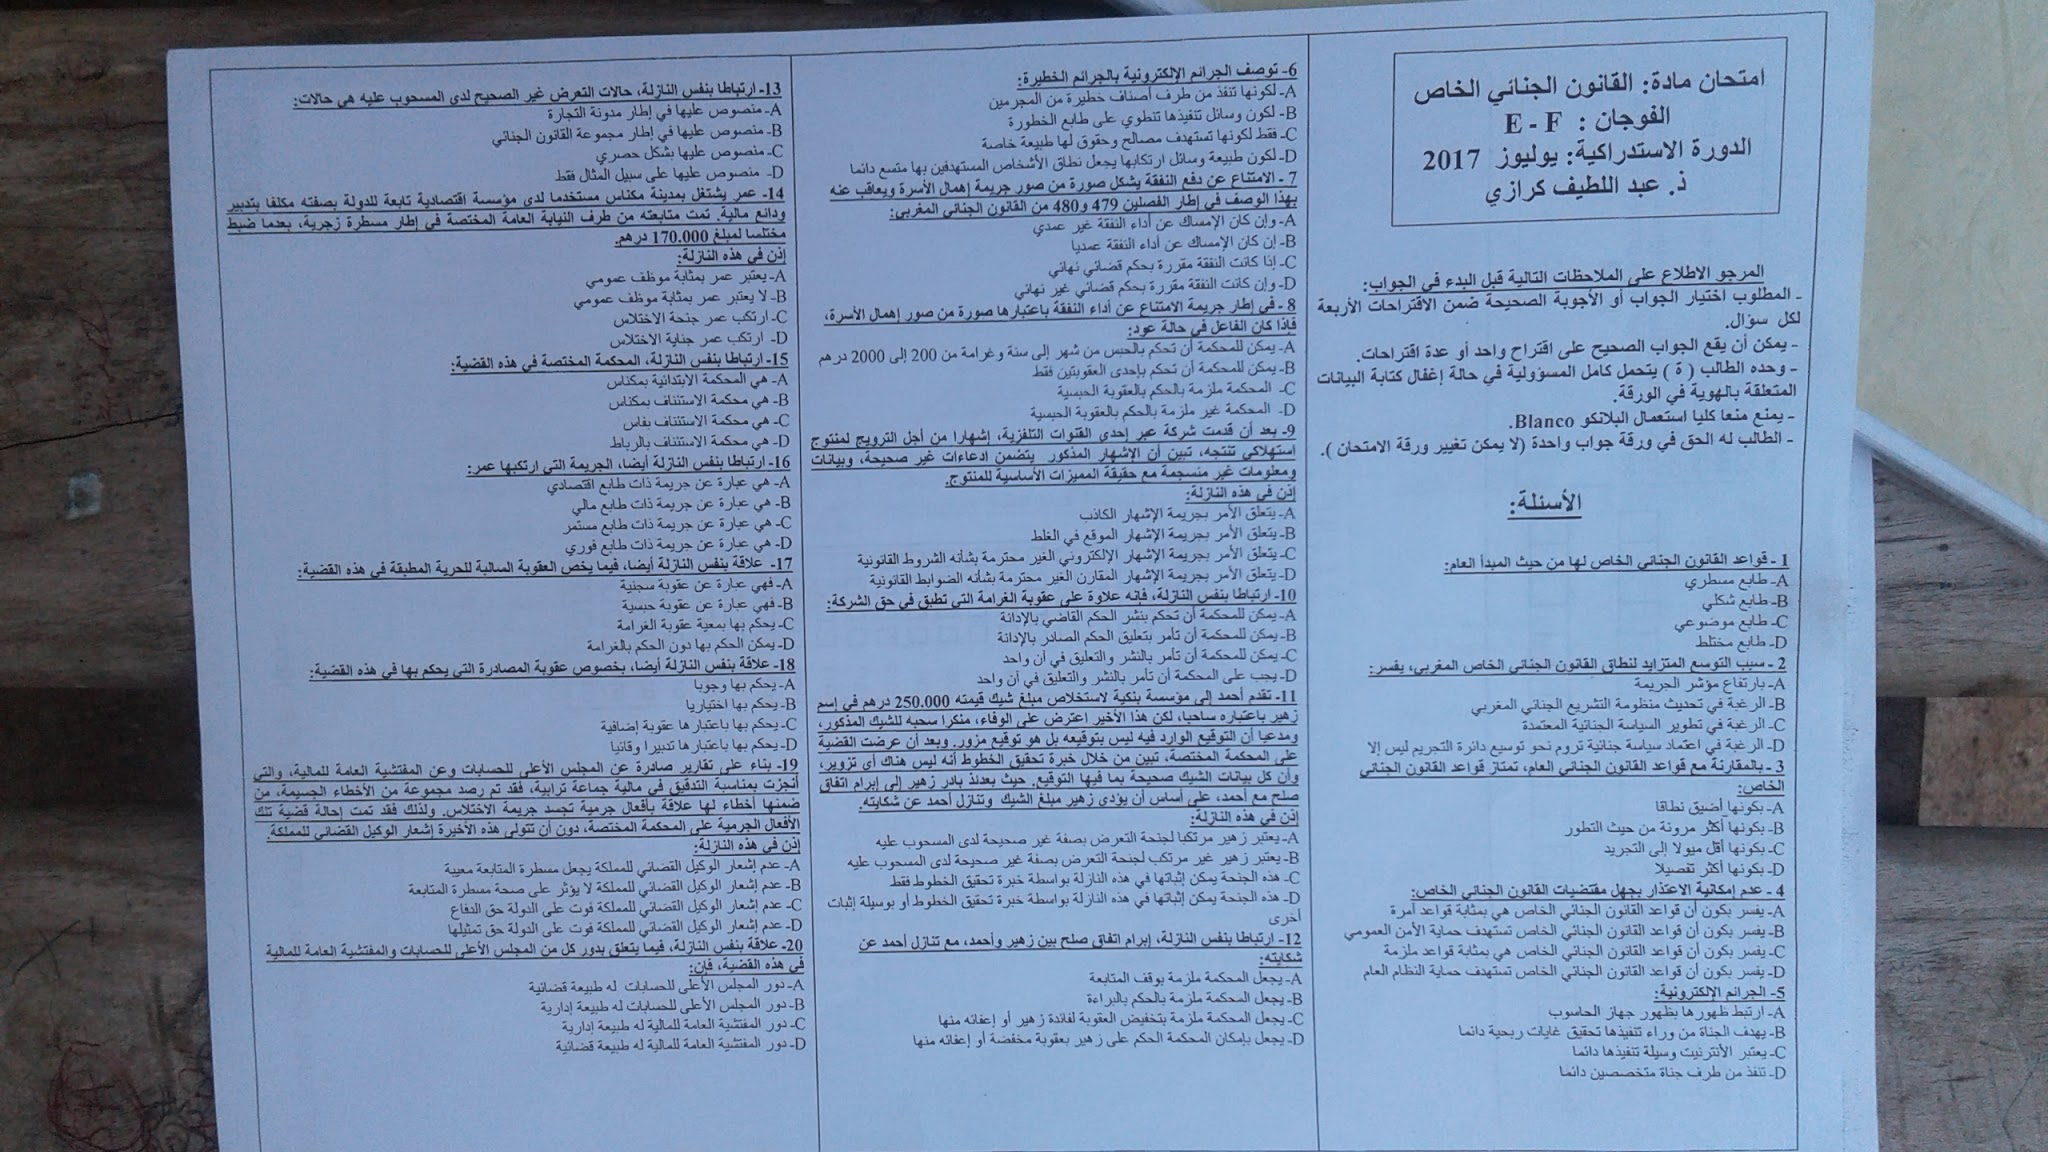 امتحان مادة: القانون الجنائي الخاص
الفوجان : E - F
الدورة الاستدراكية: يوليوز 2017
ذ. عبد اللطيف كرازي
المرجو الاطلاع على الملاحظات التالية قبل البدء في الجواب:
- المطلوب اختيار الجواب أو الأجوبة الصحيحة ضمن الاقتراحات الأربعة
لكل سؤال.
- يمكن أن يقع الجواب الصحيح على اقتراح واحد أو عدة اقتراحات.
- وحده الطالب ( ة ) يتحمل كامل المسؤولية في حالة إغفال كتابة البيانات
المتعلقة بالهوية في الورقة.
- يمنع منعا كليا استعمال البلانكو Blanco.
- الطالب له الحق في ورقة جواب واحدة (لا يمكن تغيير ورقة الامتحان ).
الأسئلة:
1 - قواعد القانون الجنائي الخاص لها من حيث المبدأ العام:
A- طابع مسطري
B- طابع شكلي
C- طابع موضوعي
D- طابع مختلط
2 - سبب التوسع المتزايد لنطاق القانون الجنائي الخاص المغربي، يفسر:
A- بارتفاع مؤشر الجريمة
B- الرغبة في تحديث منظومة التشريع الجنائي المغربي
C- الرغبة في تطوير السياسة الجنائية المعتمدة
D- الرغبة في اعتماد سياسة جنائية تروم نحو توسيع دائرة التجريم ليس إلا
3 - بالمقارنة مع قواعد القانون الجنائي العام، تمتاز قواعد القانون الجنائي
الخاص:
A- بكونها أضيق نطاقا
B- بكونها أكثر مرونة من حيث التطور
C- بكونها أقل ميولا إلى التجريد
D- بكونها أكثر تفصيلا
4 - عدم إمكانية الاعتذار بجهل مقتضيات القانون الجنائي الخاص:
A- يفسر بكون أن قواعد القانون الجنائي الخاص هي بمثابة قواعد آمرة
B- يفسر بكون أن قواعد القانون الجنائي الخاص تستهدف حماية الأمن العمومي
C- يفسر بكون أن قواعد القانون الجنائي الخاص هي بمثابة قواعد ملزمة
D- يفسر بكون أن قواعد القانون الجنائي الخاص تستهدف حماية النظام العام
5- الجرائم الإلكترونية:
A- ارتبط ظهورها بظهور جهاز الحاسوب
B- يهدف الجناة من وراء تنفيذها تحقيق غايات ربحية دائما
C- يعتبر الأنترنيت وسيلة تنفيذها دائما
D- تنفذ من طرف جناة متخصصين دائما
6- توصف الجرائم الإلكترونية بالجرائم الخطيرة:
A- لكونها تنفذ من طرف أصناف خطيرة من المجرمين
B- لكون وسائل تنفيذها تنطوي على طابع الخطورة
C- فقط لكونها تستهدف مصالح وحقوق لها طبيعة خاصة
D- لكون طبيعة وسائل ارتكابها يجعل نطاق الأشخاص المستهدفين بها متسع دائما
7 - الامتناع عن دفع النفقة يشكل صورة من صور جريمة إهمال الأسرة ويعاقب عنه
بهذا الوصف في إطار الفصلين 479 و480 من القانون الجنائي المغربي:
A- وإن كان الإمساك عن أداء النفقة غير عمدي
B- إن كان الإمساك عن أداء النفقة عمديا
C- إذا كانت النفقة مقررة بحكم قضائي نهائي
D- وإن كانت النفقة مقررة بحكم قضائي غير نهائي
8 - في إطار جريمة الامتناع عن أداء النفقة باعتبارها صورة من صور إهمال الأسرة،
فإذا كان الفاعل في حالة عود:
A- يمكن للمحكمة أن تحكم بالحبس من شهر إلى سنة وغرامة من 200 إلى 2000 درهم
B- يمكن للمحكمة أن تحكم بإحدى العقوبتين فقط
C- المحكمة ملزمة بالحكم بالعقوبة الحبسية
D- المحكمة غير ملزمة بالحكم بالعقوبة الحبسية
9- بعد أن قدمت شركة عبر إحدى القنوات التلفزية، إشهارا من أجل الترويج لمنتوج
استهلاكي تنتجه، تبين أن الإشهار المذكور يتضمن ادعاءات غير صحيحة، وبيانات
ومعلومات غير منسجمة مع حقيقة المميزات الأساسية للمنتوج.
إذن في هذه النازلة:
A- يتعلق الأمر بجريمة الإشهار الكاذب
B- يتعلق الأمر بجريمة الإشهار الموقع في الغلط
C- يتعلق الأمر بجريمة الإشهار الإلكتروني الغير محترمة بشأنه الشروط القانونية
D- يتعلق الأمر بجريمة الإشهار المقارن الغير محترمة بشأنه الضوابط القانونية
10- ارتباطا بنفس النازلة، فإنه علاوة على عقوبة الغرامة التي تطبق في حق الشركة:
A- يمكن للمحكمة أن تحكم بنشر الحكم القاضي بالإدانة
B- يمكن للمحكمة أن تأمر بتعليق الحكم الصادر بالإدانة
C- يمكن للمحكمة أن تأمر بالنشر والتعليق في آن واحد
D- يجب على المحكمة أن تأمر بالنشر والتعليق في آن واحد
11- تقدم أحمد إلى مؤسسة بنكية لاستخلاص مبلغ شيك قيمته 250.000 درهم في إسم
زهير باعتباره ساحبا، لكن هذا الأخير اعترض على الوفاء، منكرا سحبه للشيك المذكور،
ومدعيا أن التوقيع الوارد فيه ليس بتوقيعه بل هو توقيع مزور. وبعد أن عرضت القضية
على المحكمة المختصة، تبين من خلال خبرة تحقيق الخطوط أنه ليس هناك أي تزوير،
وأن كل بيانات الشيك صحيحة بما فيها التوقيع. حيث بعدئذ بادر زهير إلى إبرام اتفاق
صلح مع أحمد، على أساس أن يؤدي زهير مبلغ الشيك وتنازل أحمد عن شكايته.
إذن في هذه النازلة:
A- يعتبر زهير مرتكبا لجنحة التعرض بصفة غير صحيحة لدى المسحوب عليه
B- يعتبر زهير غير مرتكب لجنحة التعرض بصفة غير صحيحة لدى المسحوب عليه
C- هذه الجنحة يمكن إثباتها في هذه النازلة بواسطة خبرة تحقيق الخطوط فقط
D- هذه الجنحة يمكن إثباتها في هذه النازلة بواسطة خبرة تحقيق الخطوط أو بوسيلة إثبات
أخرى
12- ارتباطا بنفس النازلة، إبرام اتفاق صلح بين زهير وأحمد، مع تنازل أحمد عن
شكايته:
A- يجعل المحكمة ملزمة بوقف المتابعة
B- يجعل المحكمة ملزمة بالحكم بالبراءة
C- يجعل المحكمة ملزمة بتخفيض العقوبة لفائدة زهير أو إعفائه منها
D- يجعل بإمكان المحكمة الحكم على زهير بعقوبة مخفضة أو إعفائه منها
13- ارتباطا بنفس النازلة، حالات التعرض غير الصحيح لدى المسحوب عليه هي حالات:
A- منصوص عليها في إطار مدونة التجارة
B- منصوص عليها في إطار مجموعة القانون الجنائي
C- منصوص عليها بشكل حصري
D- منصوص عليها على سبيل المثال فقط
14- عمر يشتغل بمدينة مكناس مستخدما لدى مؤسسة اقتصادية تابعة للدولة بصفته مكلفا بتدبير
ودائع مالية. تمت متابعته من طرف النيابة العامة المختصة في إطار مسطرة زجرية، بعدما ضبط
مختلسا لمبلغ 170.000 درهم.
إذن في هذه النازلة:
A- يعتبر عمر بمثابة موظف عمومي
B- لا يعتبر عمر بمثابة موظف عمومي
C- ارتكب عمر جنحة الاختلاس
D- ارتكب عمر جناية الاختلاس
15- ارتباطا بنفس النازلة، المحكمة المختصة في هذه القضية:
A- هي المحكمة الابتدائية بمكناس
B- هي محكمة الاستئناف بمكناس
C- هي محكمة الاستئناف بفاس
D- هي محكمة الاستئناف بالرباط
16- ارتباطا بنفس النازلة أيضا، الجريمة التي ارتكبها عمر:
A- هي عبارة عن جريمة ذات طابع اقتصادي
B- هي عبارة عن جريمة ذات طابع مالي
C- هي عبارة عن جريمة ذات طابع مستمر
D- هي عبارة عن جريمة ذات طابع فوري
17- علاقة بنفس النازلة أيضا، فيما يخص العقوبة السالبة للحرية المطبقة في هذه القضية:
A- فهي عبارة عن عقوبة سجنية
B- فهي عبارة عن عقوبة حبسية
C- يحكم بها بمعية عقوبة الغرامة
D- يمكن الحكم بها دون الحكم بالغرامة
18- علاقة بنفس النازلة أيضا، بخصوص عقوبة المصادرة التي يحكم بها في هذه القضية:
A- يحكم بها وجوبا
B- يحكم بها اختياريا
C- يحكم بها باعتبارها عقوبة إضافية
D- يحكم بها باعتبارها تدبيرا وقائيا
19- بناء على تقارير صادرة عن المجلس الأعلى للحسابات وعن المفتشية العامة للمالية، والتي
أنجزت بمناسبة التدقيق في مالية جماعة ترابية، فقد تم رصد مجموعة من الأخطاء الجسيمة، من
ضمنها أخطاء لها علاقة بأفعال جرمية تجسد جريمة الاختلاس. ولذلك فقد تمت إحالة قضية تلك
الأفعال الجرمية على المحكمة المختصة، دون أن تتولى هذه الأخيرة إشعار الوكيل القضائي للمملكة.
إذن في هذه النازلة:
A- عدم إشعار الوكيل القضائي للمملكة يجعل مسطرة المتابعة معيبة
B- عدم إشعار الوكيل القضائي للمملكة لا يؤثر على صحة مسطرة المتابعة
C- عدم إشعار الوكيل القضائي للمملكة فوت على الدولة حق الدفاع
D- عدم إشعار الوكيل القضائي للمملكة فوت على الدولة حق تمثيلها
20- علاقة بنفس النازلة، فيما يتعلق بدور كل من المجلس الأعلى للحسابات والمفتشية العامة للمالية
في هذه القضية، فإن:
A- دور المجلس الأعلى للحسابات له طبيعة قضائية
B- دور المجلس الأعلى للحسابات له طبيعة إدارية
C- دور المفتشية العامة للمالية له طبيعة إدارية
D- دور المفتشية العامة للمالية له طبيعة قضائية